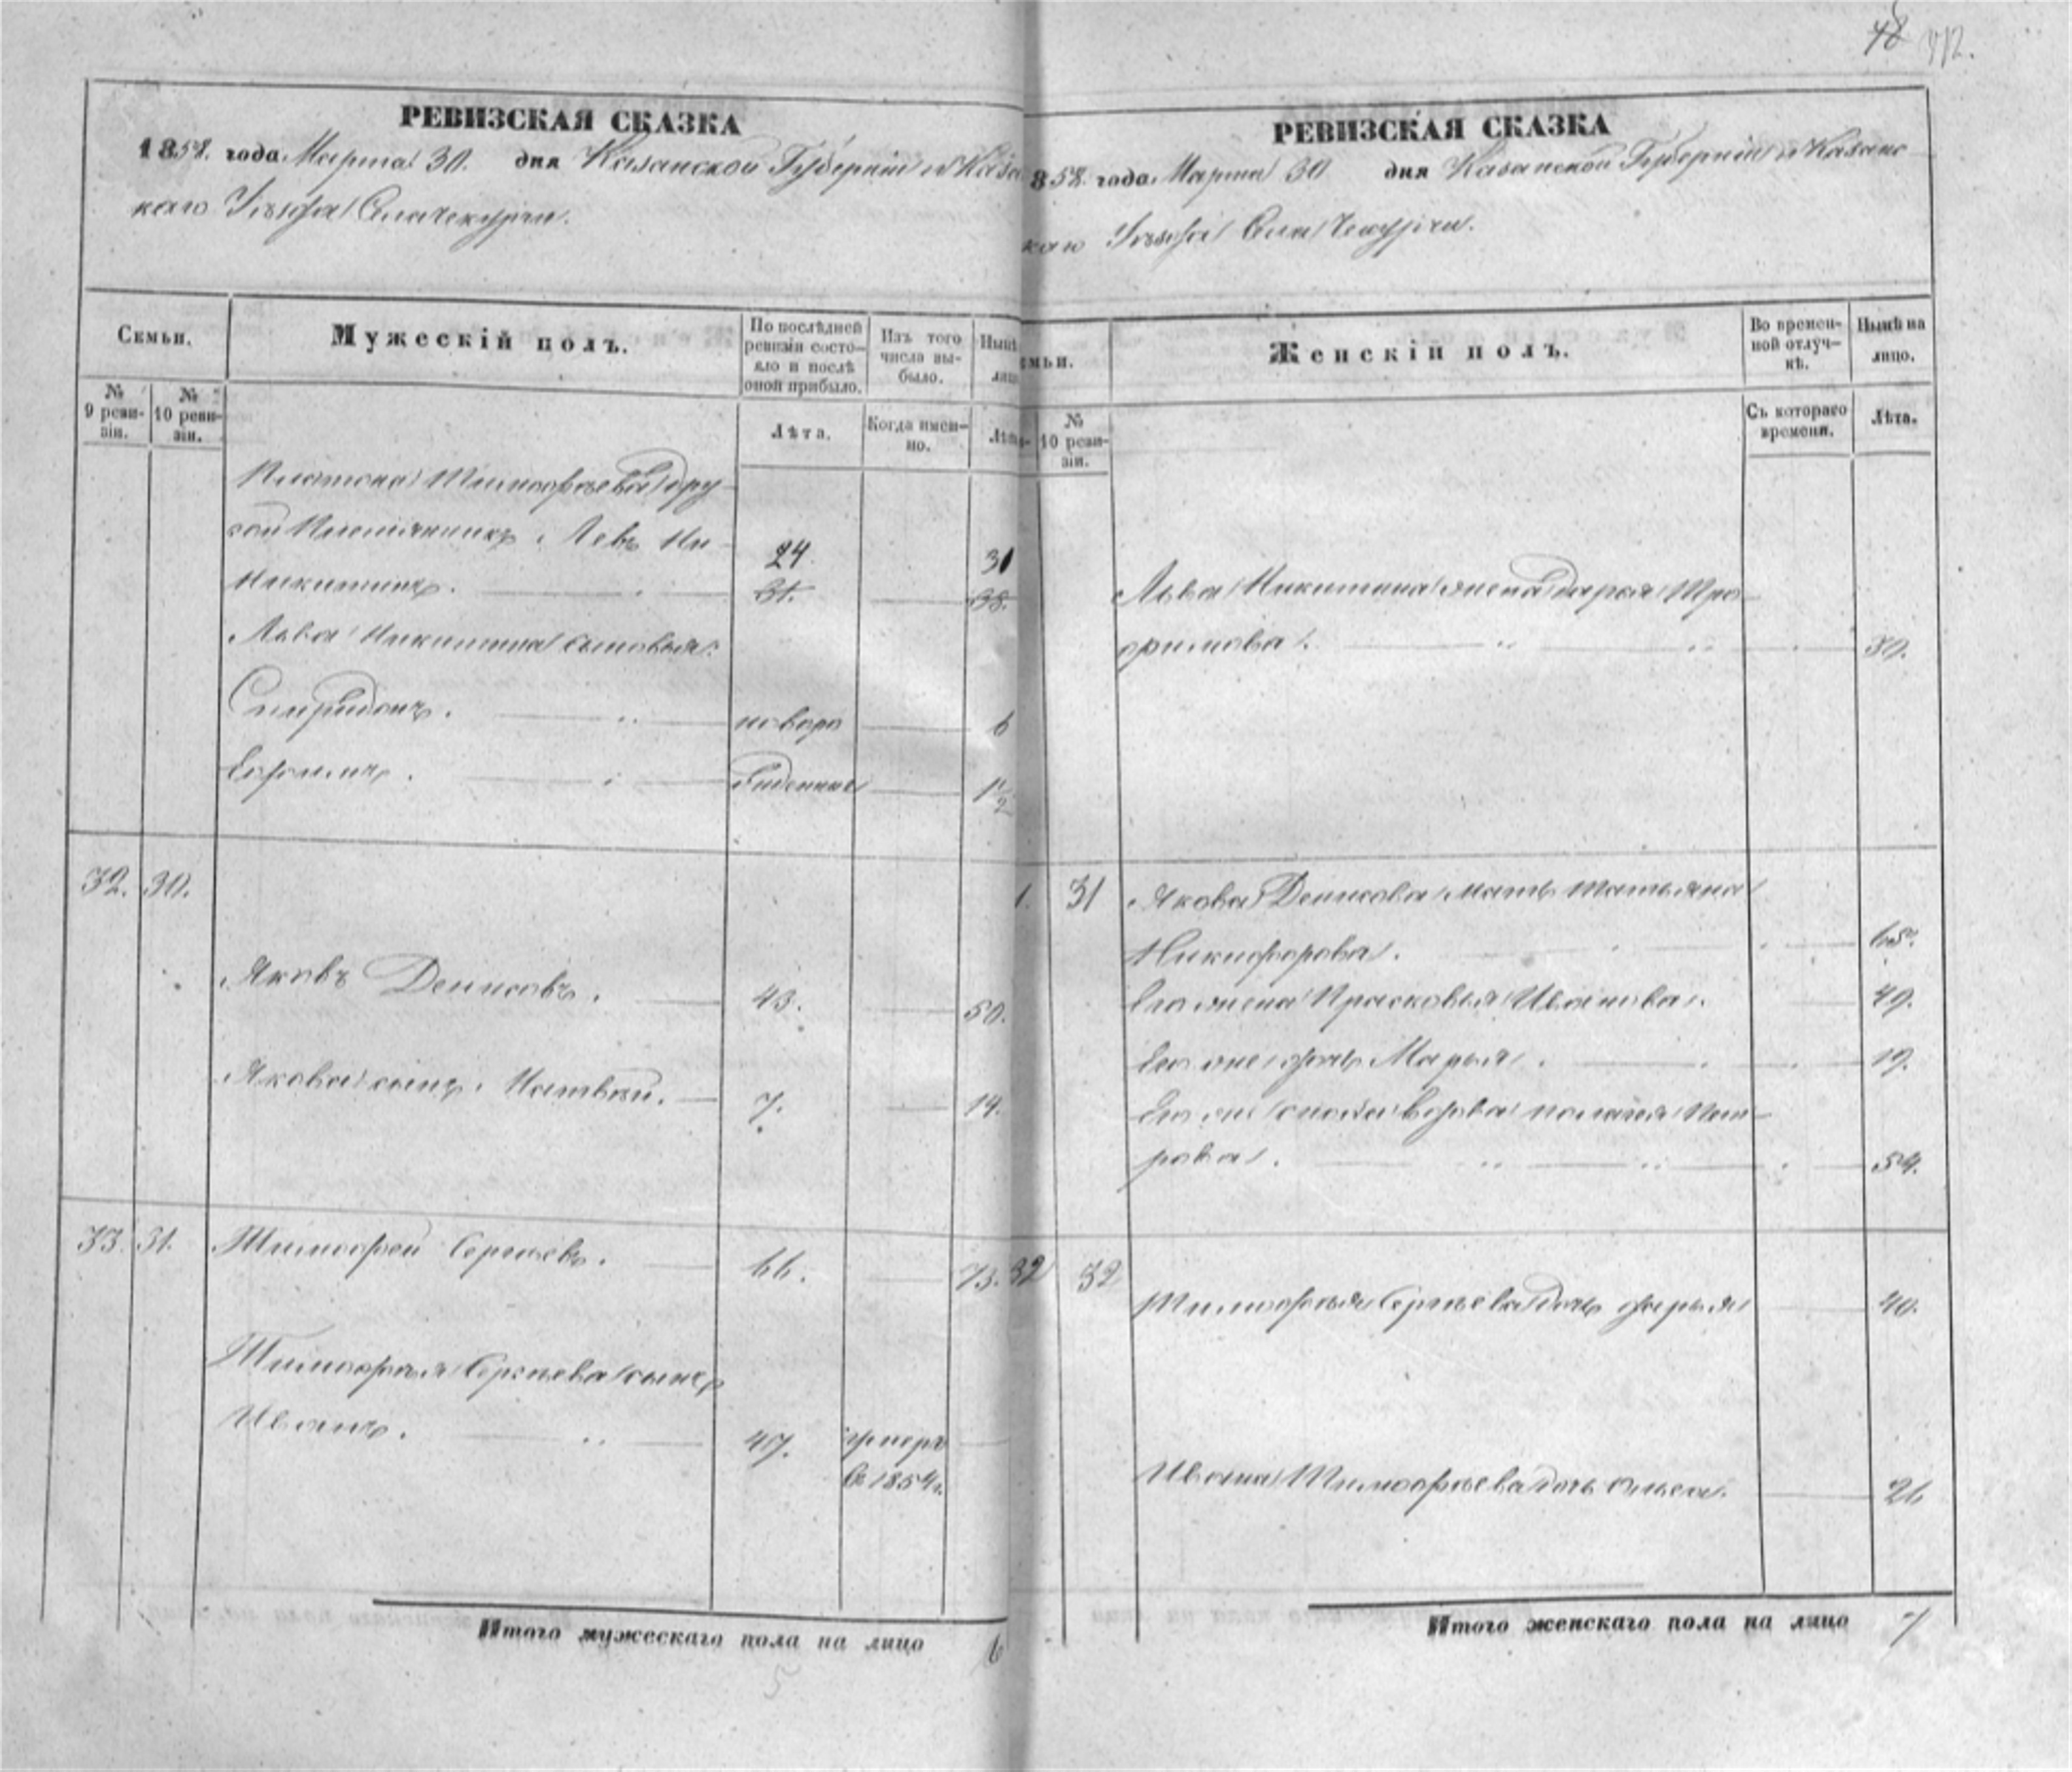 48
РЕВИЗСКАЯ СКАЗКА
1858. года Марта 30. дня Казанской Губернiи и Каза
каго Уѣзда Села Чекурчи.
Семьи.
Мужескiй полъ.
По послѣдней ревизiи состояло и послѣ оной прибыло.
Изъ того числа выбыло.
Нынѣ лицо
№ 9 ревизiи.
№ 10 ревизiи.
Лѣта.
Когда именно.
Лѣта
Платона Тимофѣева дру-
гой Племянникъ Левъ Ни-
Никитинъ. 24 31. 31 38.
Льва Никитина сыновья:
Спиридонъ. новоро 6
Ефремъ. жденные 1 1/2
32. 30.
Яковъ Денисовъ. 43. 50.
Якова сынъ Матвѣй. 7. 14.
33. 31. Тимофей Сергѣевъ. 66. 73.
Тимофея Сергѣева сынъ
Иванъ. 47. умеръ
въ 1854г.
Итого мужескаго пола на лицо 6
РЕВИЗСКАЯ СКАЗКА
858. года Марта 30 дня Казанской Губернiи и Казанс
каго Уѣзда Села Чекурчи.
мьи.
Женскiй полъ.
Во временной отлучкѣ.
Нынѣ на лицо.
№ 10 ревизiи.
Съ котораго времени.
Лѣта.
Льва Никитина жена Дарья Тро-
фимова. 30.
1. 31 Якова Денисова мать Татьяна
Никифорова. 65.
Его жена Прасковья Иванова. 49.
Его же дочь Марья. 19.
Его же вдова Пелагея Пет-
рова. 54.
32 32
Тимофея Сергѣева дочь Дарья 40.
Ивана Тимофѣева дочь 26
Итого женскаго пола на лицо 7